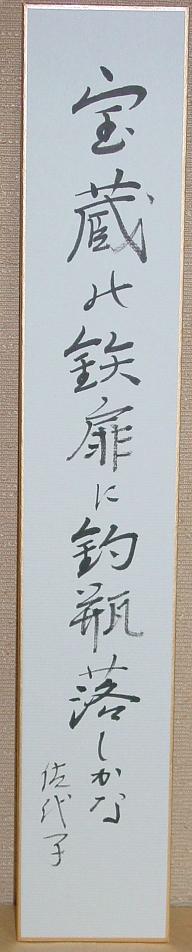 宝蔵の鉄扉に釣瓶落しかな
佐代子